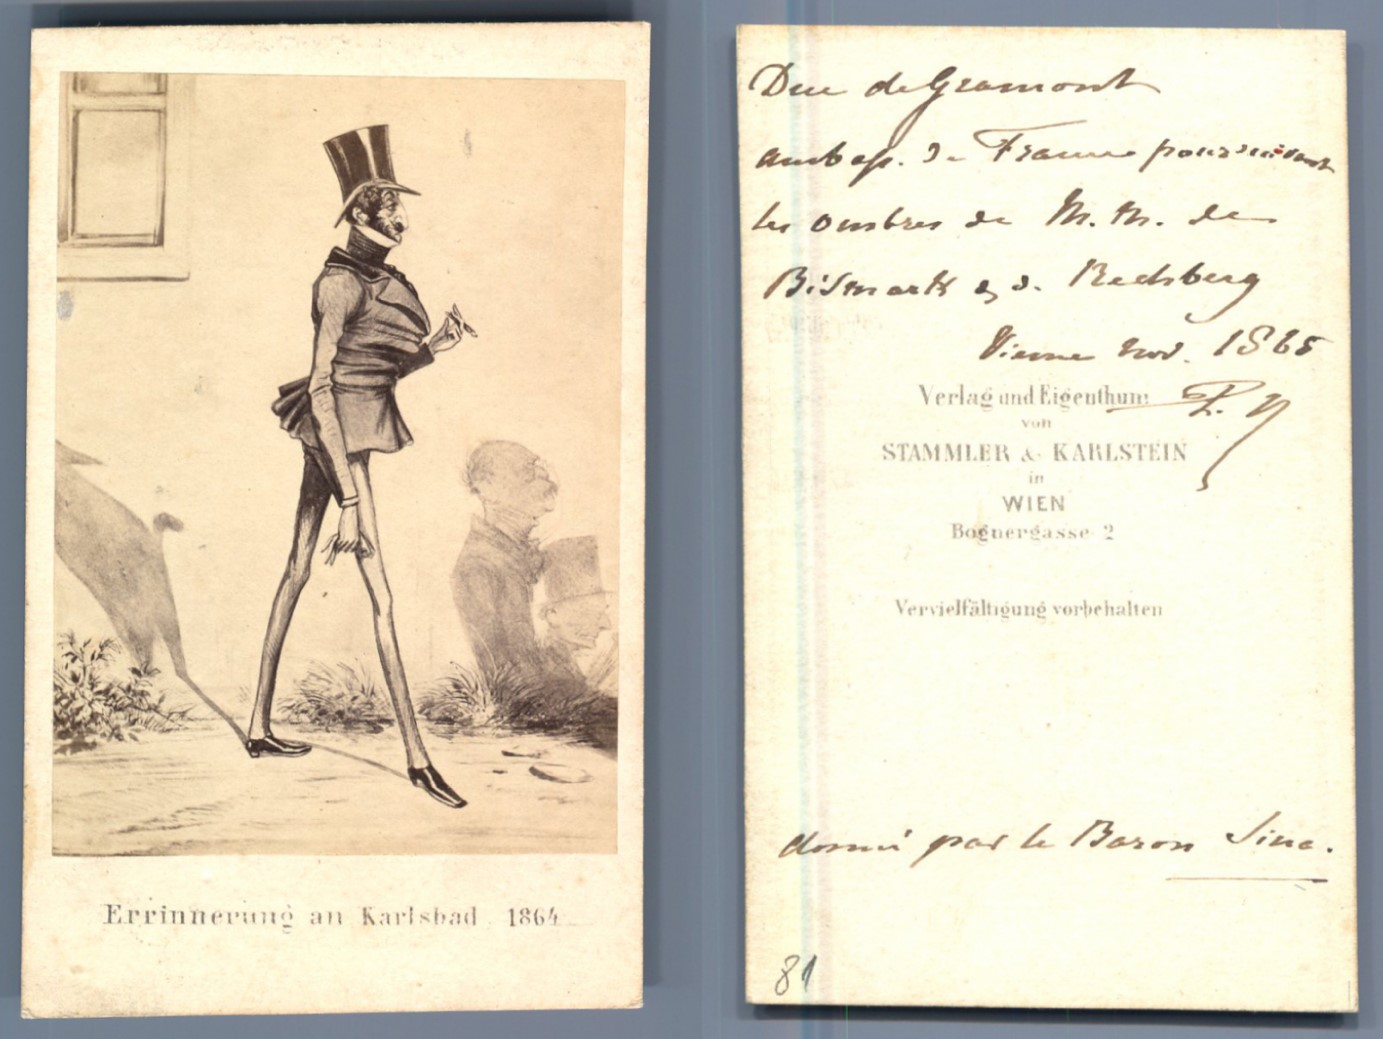 Errinnerung an Karlsbad. 1864
Duc de Gramont
ambass. de France poursuivant
les ombres de M. M. de
Bismark & d. Rechberg
Vienne nov. 1865
Verlag und Eigenthum
von
STAMMLER & KARLSTEIN
in
WIEN
Bognergasse 2
Vervielfältigung vorbehalten
donné par le Baron Sina.
81